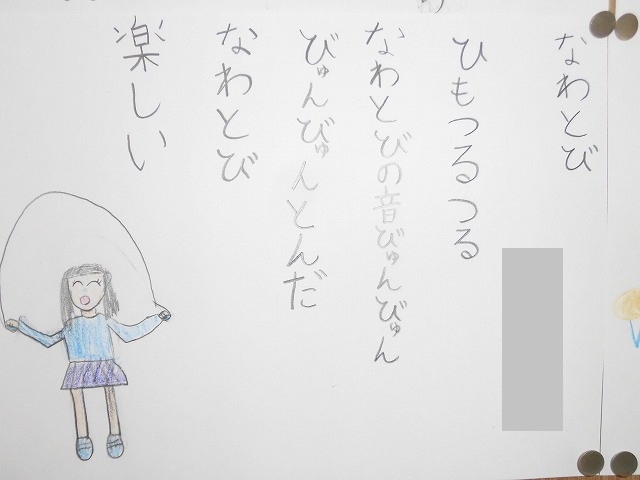 なわとび
ひもつるつる
なわとびの音びゅんびゅん
びゅんびゅんとんだ
なわとび
楽しい